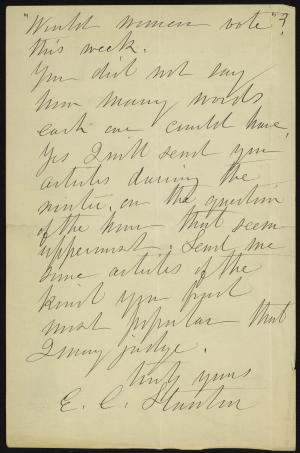 "Would women vote"?
this week.
You did not say
how many words
each one could have.
Yes I will send you
articles during the
winter, on the question
of the hour that seem
uppermost. Send me
some articles of the
kind you find
most popular that
I may judge.
truly yours
E. C. Stanton